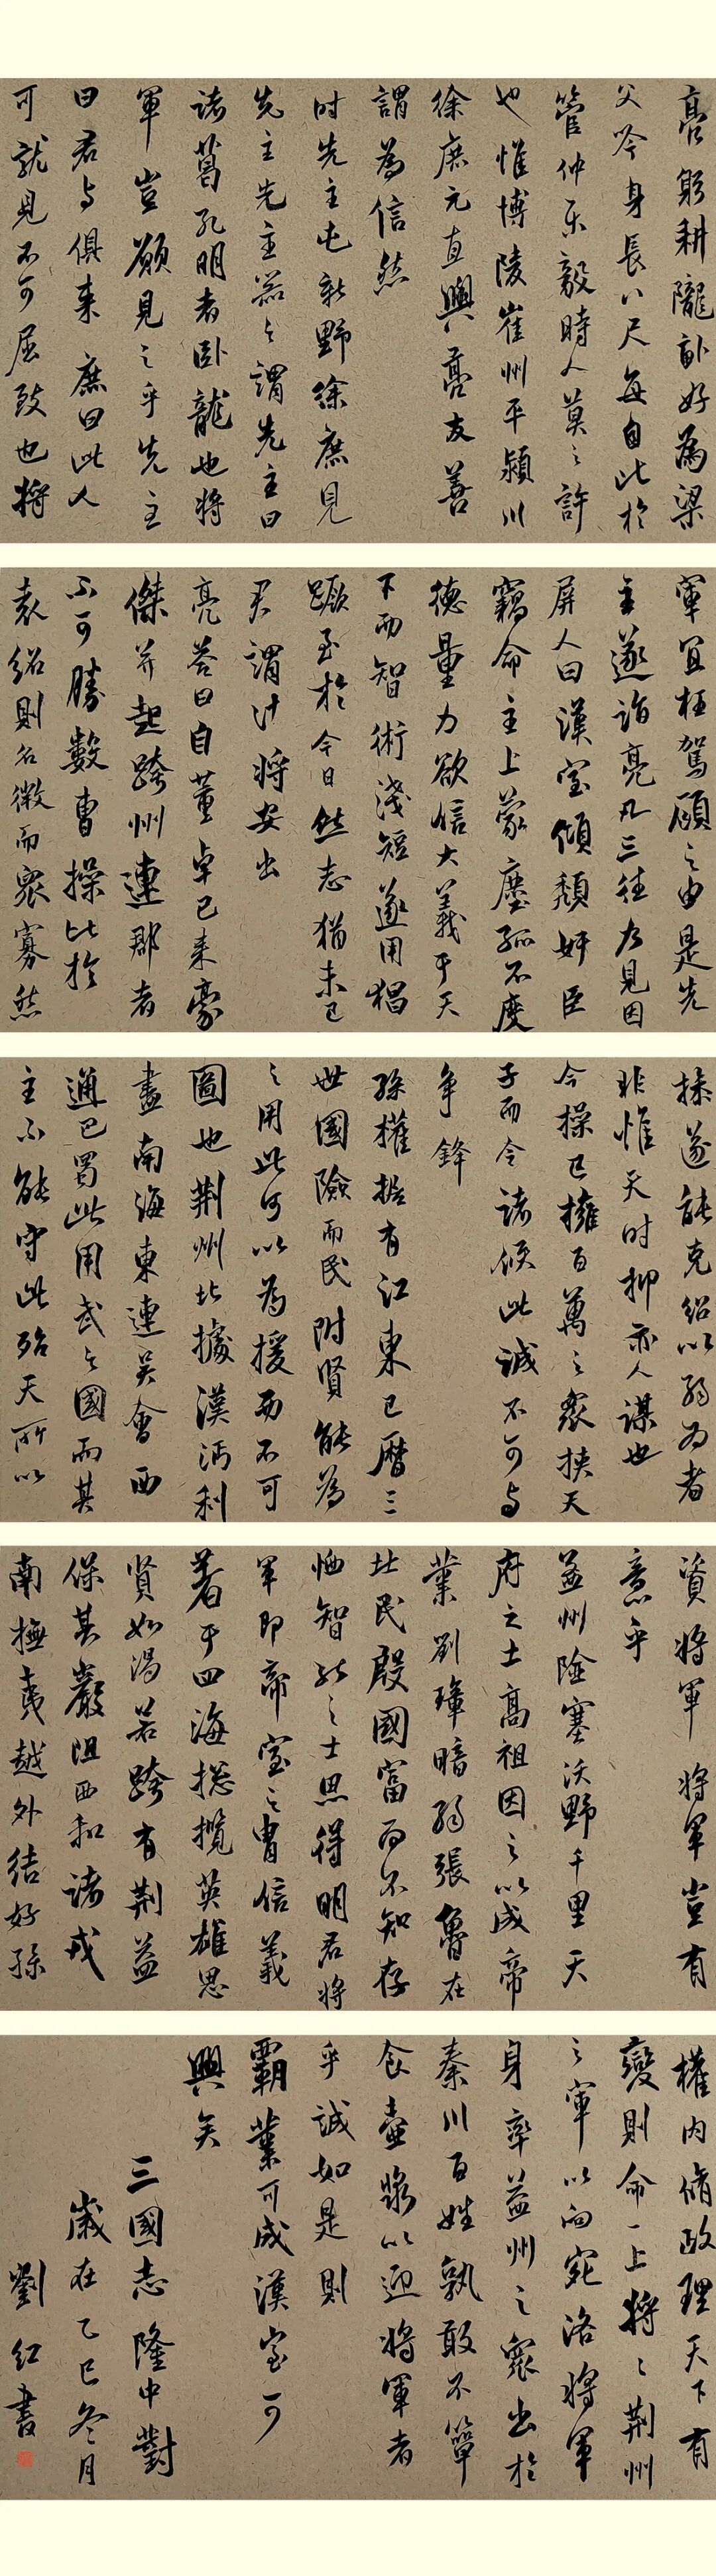 亮躬耕隴畝好為梁
父吟身長八尺每自比於
管仲樂毅時人莫之許
也惟博陵崔州平潁川
徐庶元直與亮友善
謂為信然
时先主屯新野徐庶見
先主先主器之謂先主曰
諸葛孔明者卧龍也將
軍豈願見之乎先主
曰君与俱来庶曰此人
可就見不可屈致也將
軍宜枉駕顧之由是先
主遂詣亮凡三往乃見因
屏人曰漢室傾頹奸臣
竊命主上蒙塵孤不度
德量力欲信大義于天
下而智術淺短遂用猖
蹶至於今日然志猶未已
君謂计將安出
亮答曰自董卓已来豪
傑并起跨州連郡者
不可勝數曹操比於
袁紹則名微而衆寡然
操遂能克紹以弱为者
非惟天时抑亦人謀也
今操已擁百萬之衆挟天
子而令諸侯此诚不可与
争鋒
孫權據有江東已曆三
世國險而民附賢能為
之用此可以為援而不可
圖也荆州北據漢沔利
盡南海東連吳會西
通巴蜀此用武之國而其
主不能守此殆天所以
資將軍將軍豈有
意乎
益州險塞沃野千里天
府之土高祖因之以成帝
業劉璋暗弱張魯在
北民殷國富而不知存
恤智能之士思得明君將
軍即帝室之胄信義
著于四海揔攬英雄思
賢如渴若跨有荆益
保其巖阻西和諸戎
南撫夷越外结好孫
權内脩政理天下有
變則命一上將將荆州
之軍以向宛洛將軍
身率益州之衆出於
秦川百姓孰敢不簞
食壺漿以迎將軍者
乎誠如是則
霸業可成漢室可
興矣
三國志隆中對
歲在乙巳冬月
劉紅書